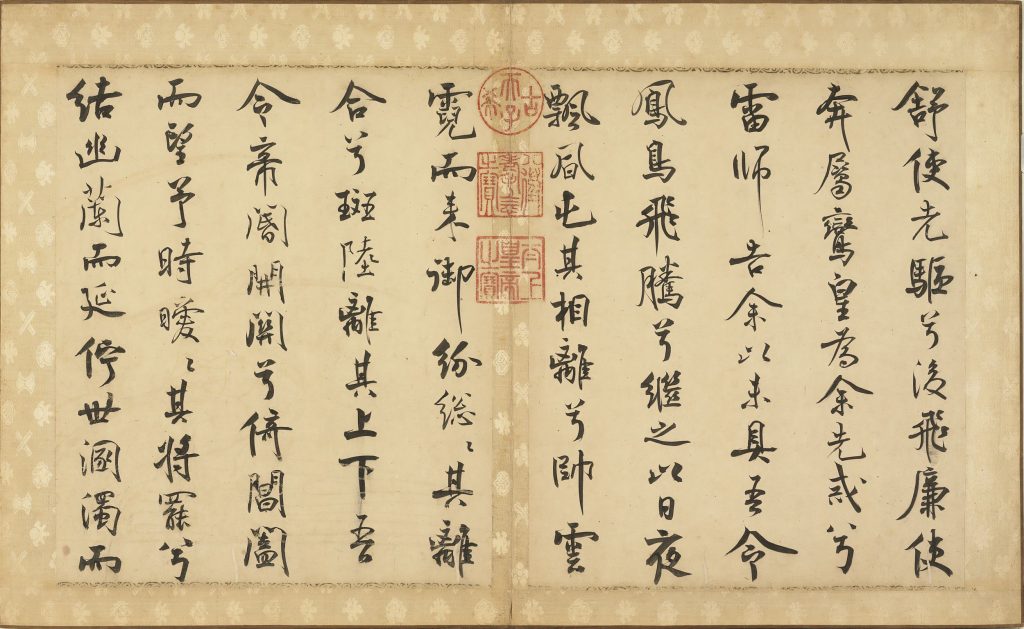 舒使先驅兮後飛廉使
奔屬鸞皇為余先戒兮
雷師告余以未具吾令
鳳鳥飛騰兮繼之以日夜
飄風屯其相離兮帥雲
霓而来御紛総〻其離
合兮斑陸離其上下吾
令帝閽開關兮倚閶闔
而望予時曖〻其将罷兮
結幽蘭而延佇世溷濁而
古希天子
八徵耄念之寶
太上皇帝之寶